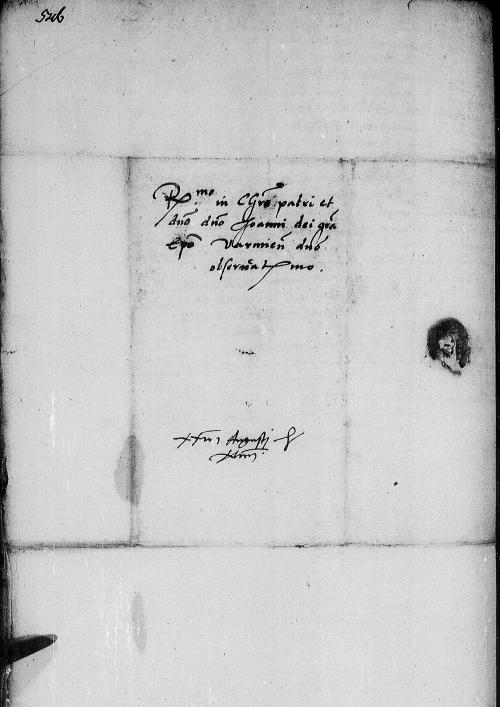 526
R.mo in Chro patri et
dno dno Joanni dei gra
Epo Varmien dno
obseruat.mo.
Augusti